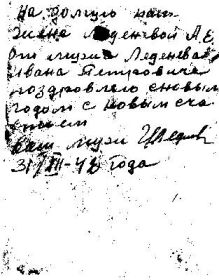 на долгую пам
Жена Леденевой А.Е.
от мужа Леденева
Ивана Петровича
поздровляю с новым
годом с новым сча
стием
ваш муж
31/III-42 года